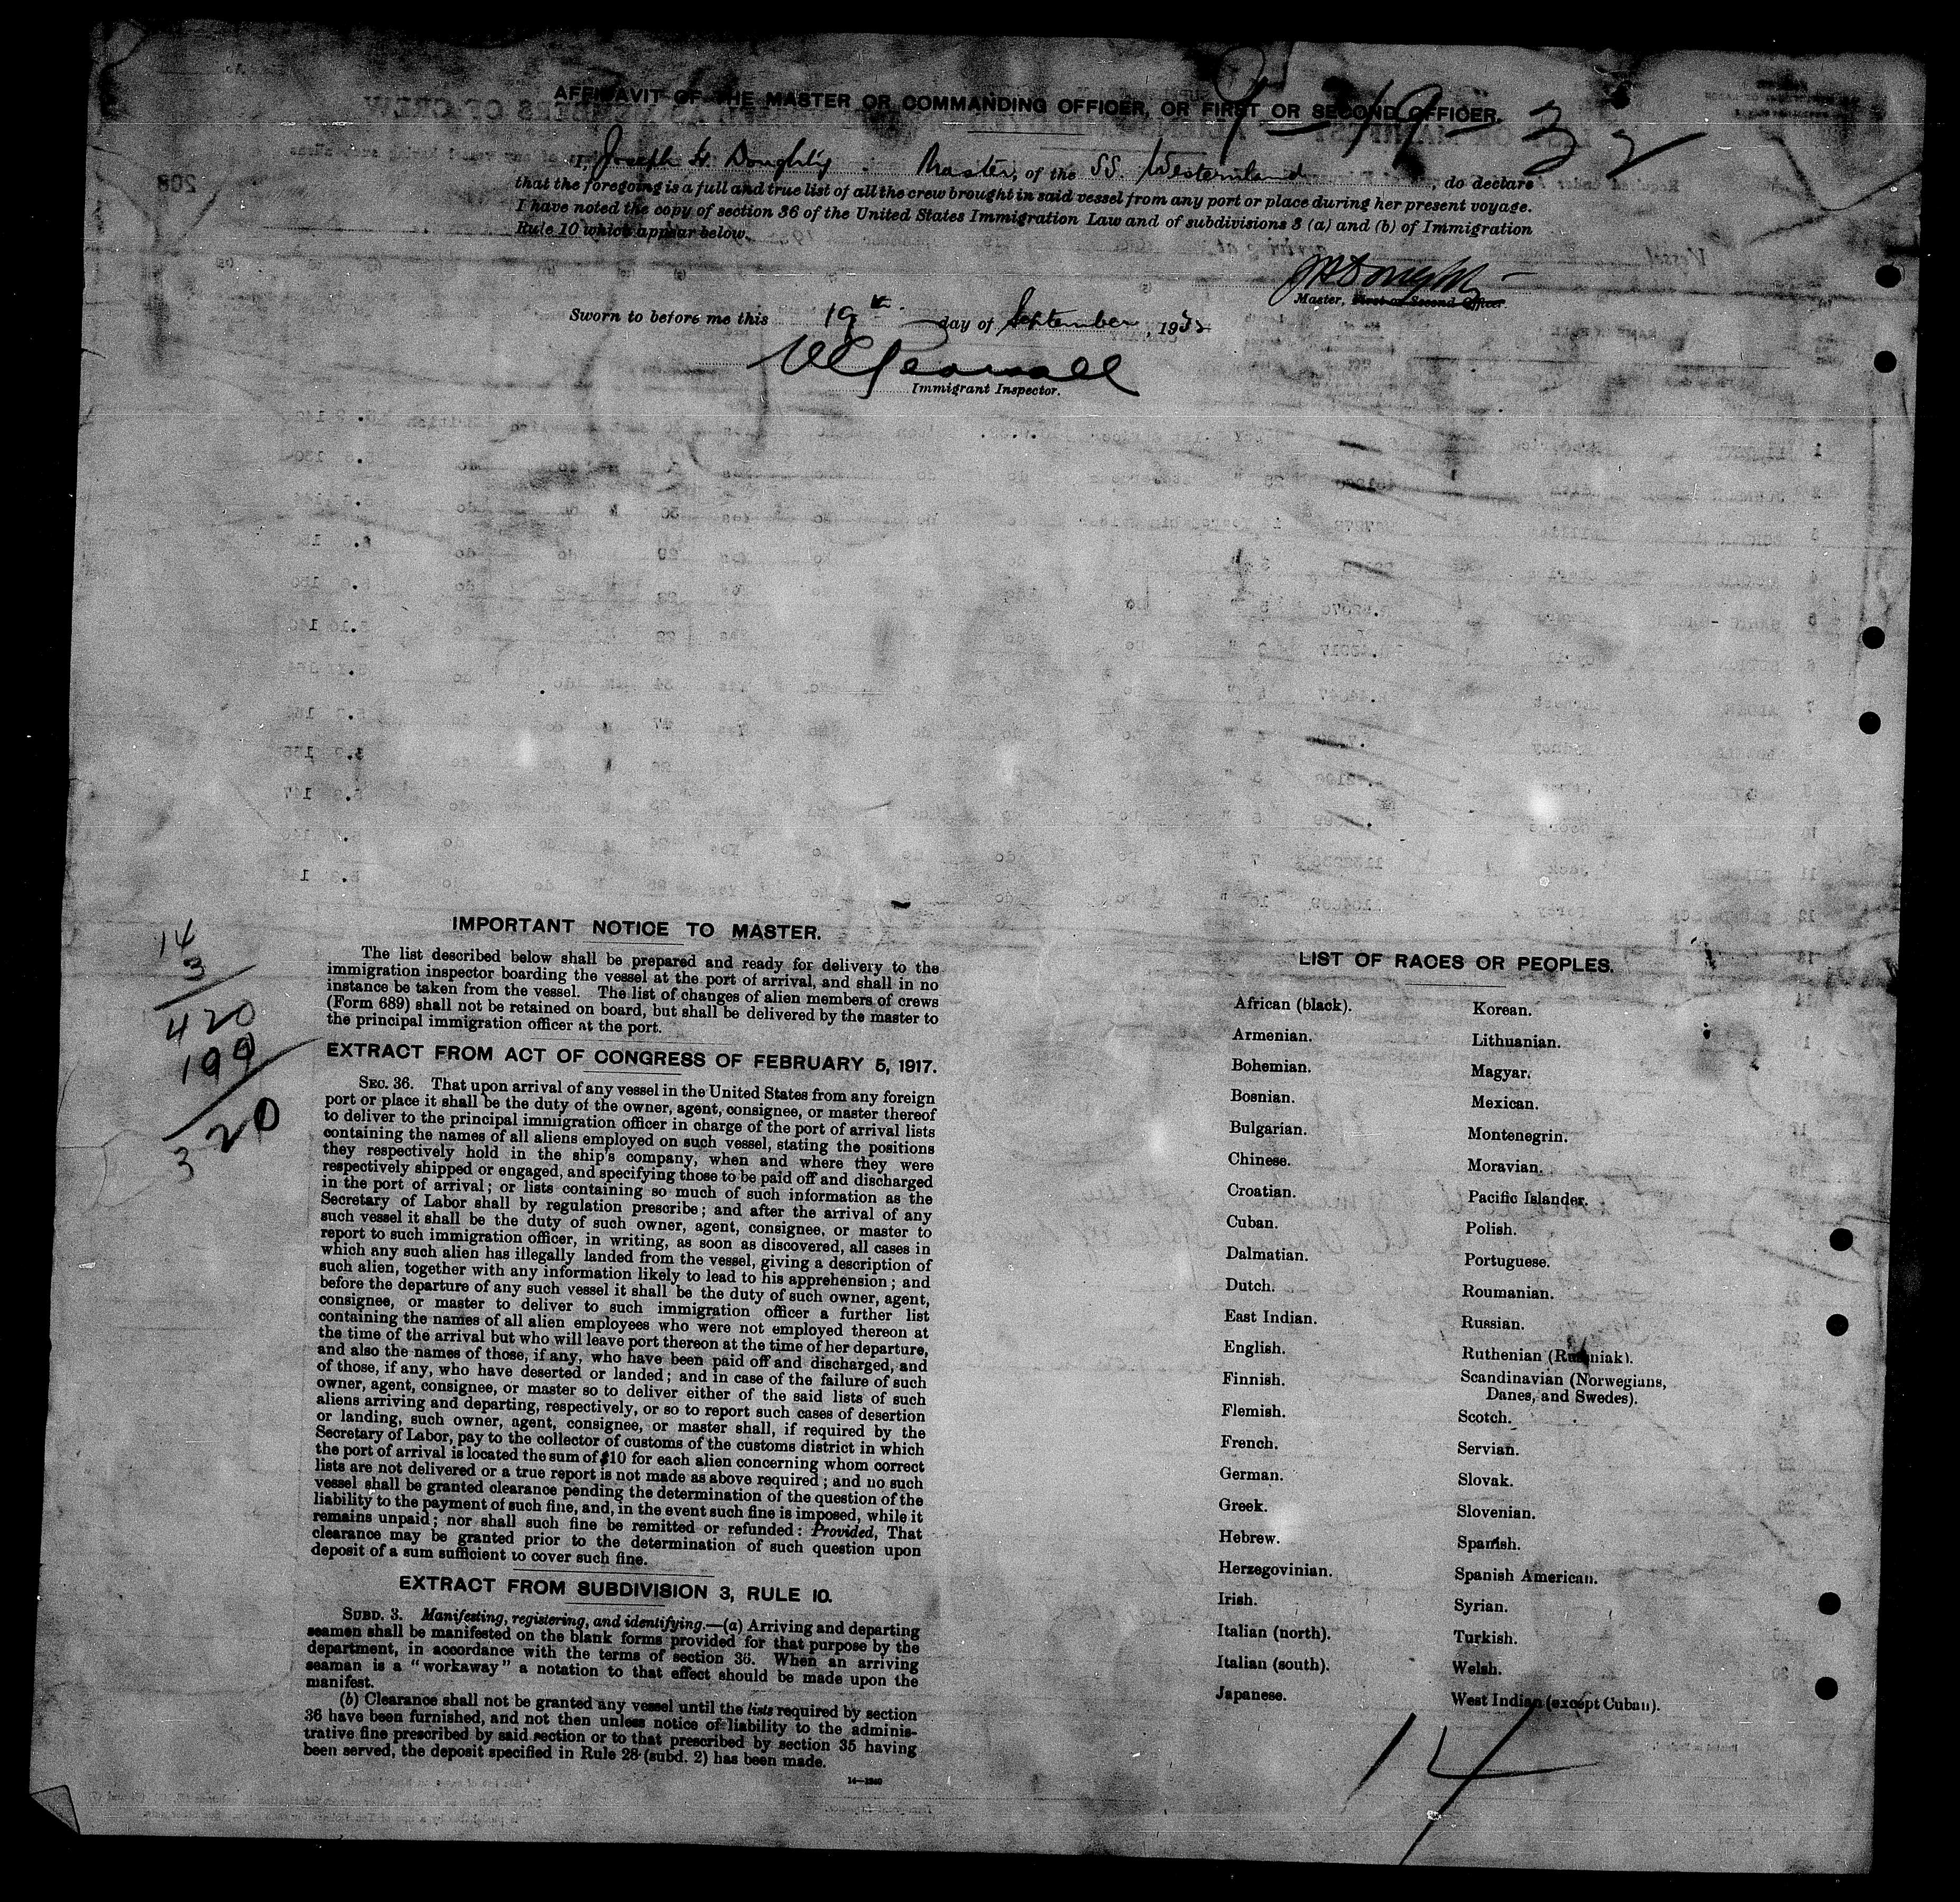 9-19-32
AFFIDAVIT OF THE MASTER OR COMMANDING OFFICER, OR FIRST OR SECOND OFFICER.
I, Joseph H. Doughty Master, of the SS. Westernland, do declare
that the foregoing is a full and true list of all the crew brought in said vessel from any port or place during her present voyage.
I have noted the copy of section 36 of the United States Immigration Law and of subdivisions 3 (a) and (b) of Immigration
Rule 10 which appear below.
JHDoughty
Master, First or Second Officer.
Sworn to before me this 19th day of September, 1932
Immigrant Inspector.
IMPORTANT NOTICE TO MASTER.
The list described below shall be prepared and ready for delivery to the
immigration inspector boarding the vessel at the port of arrival, and shall in no
instance be taken from the vessel. The list of changes of alien members of crews
(Form 689) shall not be retained on board, but shall be delivered by the master to
the principal immigration officer at the port.
EXTRACT FROM ACT OF CONGRESS OF FEBRUARY 5, 1917.
SEC. 36. That upon arrival of any vessel in the United States from any foreign
port or place it shall be the duty of the owner, agent, consignee, or master thereof
to deliver to the principal immigration officer in charge of the port of arrival lists
containing the names of all aliens employed on such vessel, stating the positions
they respectively hold in the ship's company, when and where they were
respectively shipped or engaged, and specifying those to be paid off and discharged
in the port of arrival; or lists containing so much of such information as the
Secretary of Labor shall by regulation prescribe; and after the arrival of any
such vessel it shall be the duty of such owner, agent, consignee, or master to
report to such immigration officer, in writing, as soon as discovered, all cases in
which any such alien has illegally landed from the vessel, giving a description of
such alien, together with any information likely to lead to his apprehension; and
before the departure of any such vessel it shall be the duty of such owner, agent,
consignee, or master to deliver to such immigration officer a further list
containing the names of all alien employees who were not employed thereon at
the time of the arrival but who will leave port thereon at the time of her departure,
and also the names of those, if any, who have been paid off and discharged, and
of those, if any, who have deserted or landed; and in case of the failure of such
owner, agent, consignee, or master so to deliver either of the said lists of such
aliens arriving and departing, respectively, or so to report such cases of desertion
or landing, such owner, agent, consignee, or master shall, if required by the
Secretary of Labor, pay to the collector of customs of the customs district in which
the port of arrival is located the sum of $10 for each alien concerning whom correct
lists are not delivered or a true report is not made as above required; and no such
vessel shall be granted clearance pending the determination of the question of the
liability to the payment of such fine, and, in the event such fine is imposed, while it
remains unpaid; nor shall such fine be remitted or refunded: Provided, That
clearance may be granted prior to the determination of such question upon
deposit of a sum sufficient to cover such fine.
EXTRACT FROM SUBDIVISION 3, RULE 10.
SUBD. 3. Manifesting, registering, and identifying.—(a) Arriving and departing
seamen shall be manifested on the blank forms provided for that purpose by the
department, in accordance with the terms of section 36. When an arriving
seaman is a "workaway" a notation to that effect should be made upon the
manifest.
(b) Clearance shall not be granted any vessel until the lists required by section
36 have been furnished, and not then unless notice of liability to the adminis-
trative fine prescribed by said section or to that prescribed by section 35 having
been served, the deposit specified in Rule 28 (subd. 2) has been made.
14—1240
14
3
420
100
320
LIST OF RACES OR PEOPLES.
African (black).
Armenian.
Bohemian.
Bosnian.
Bulgarian.
Chinese.
Croatian.
Cuban.
Dalmatian.
Dutch.
East Indian.
English.
Finnish.
Flemish.
French.
German.
Greek.
Hebrew.
Herzegovinian.
Irish.
Italian (north).
Italian (south).
Japanese.
Korean.
Lithuanian.
Magyar.
Mexican.
Montenegrin.
Moravian.
Pacific Islander.
Polish.
Portuguese.
Roumanian.
Russian.
Ruthenian (Russniak).
Scandinavian (Norwegians,
Danes, and Swedes).
Scotch.
Servian.
Slovak.
Slovenian.
Spanish.
Spanish American.
Syrian.
Turkish.
Welsh.
West Indian (except Cuban).
14